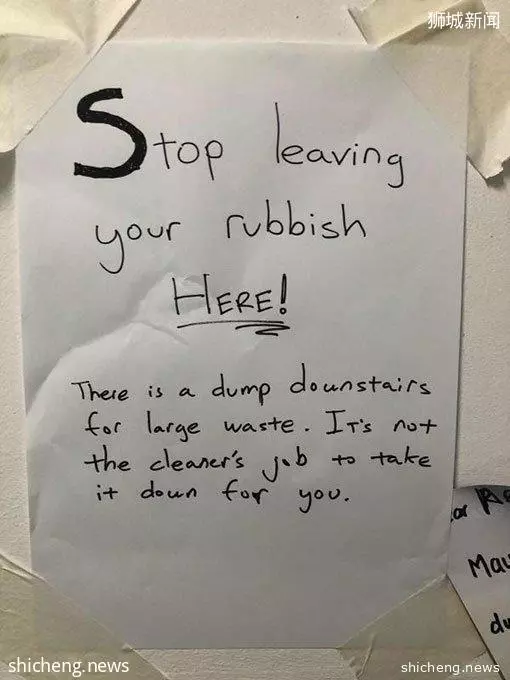 狮城新闻
Stop leaving
your rubbish
HERE!
There is a dump downstairs
for large waste. IT's not
the cleaner's job to take
it down for you.
Mau
du
shicheng.news
shicheng.news